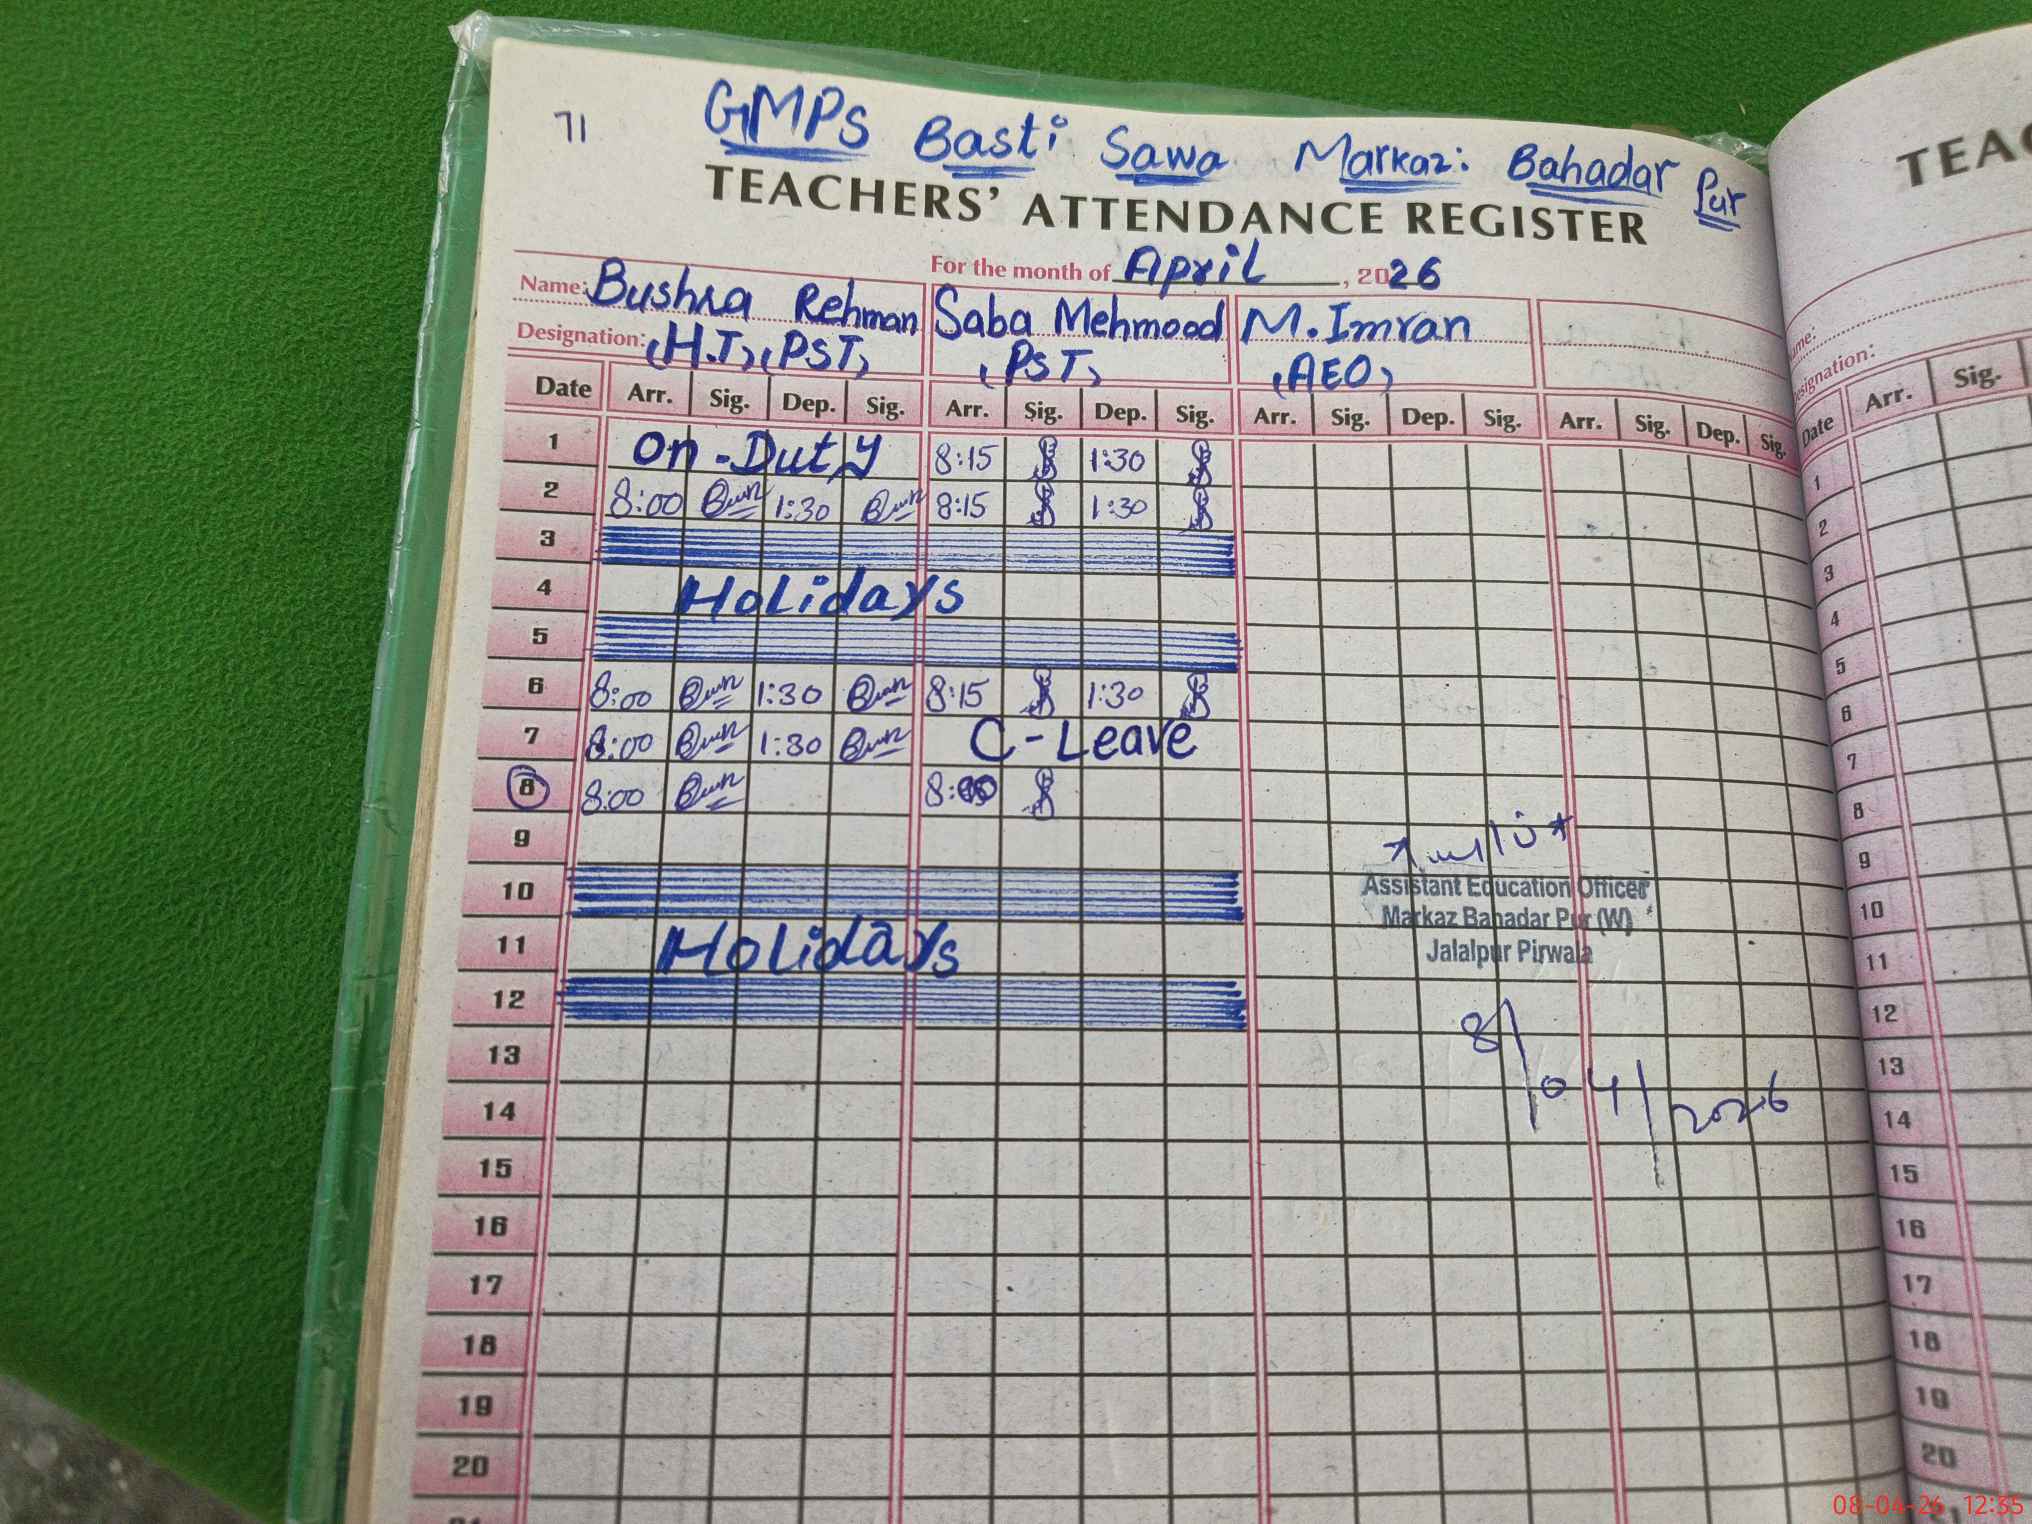 71
GMPS Basti Sawa Markaz: Bahadar Pur
TEACHERS' ATTENDANCE REGISTER
For the month of April, 2026
Name: Bushra Rehman Saba Mehmood M. Imran
Designation: (H.T),(PST) (PST) (AEO)
Date Arr. Sig. Dep. Sig. Arr. Sig. Dep. Sig. Arr. Sig. Dep. Sig. Arr. Sig. Dep. Sig.
1 On-Duty 8:15 1:30
2 8:00 1:30 8:15 1:30
3
4 Holidays
5
6 8:00 1:30 8:15 1:30
7 8:00 1:30 C-Leave
8 8:00
9
10
11 Holidays
12
13
14
15
16
17
18
19
20
Assistant Education Officer
Markaz Bahadar Pur (W)
Jalalpur Pirwala
8/04/2026
TEAC
Designation:
Date Arr. Sig.
1
2
3
4
5
6
7
8
9
10
11
12
13
14
15
16
17
18
19
20
08-04-26 12:35